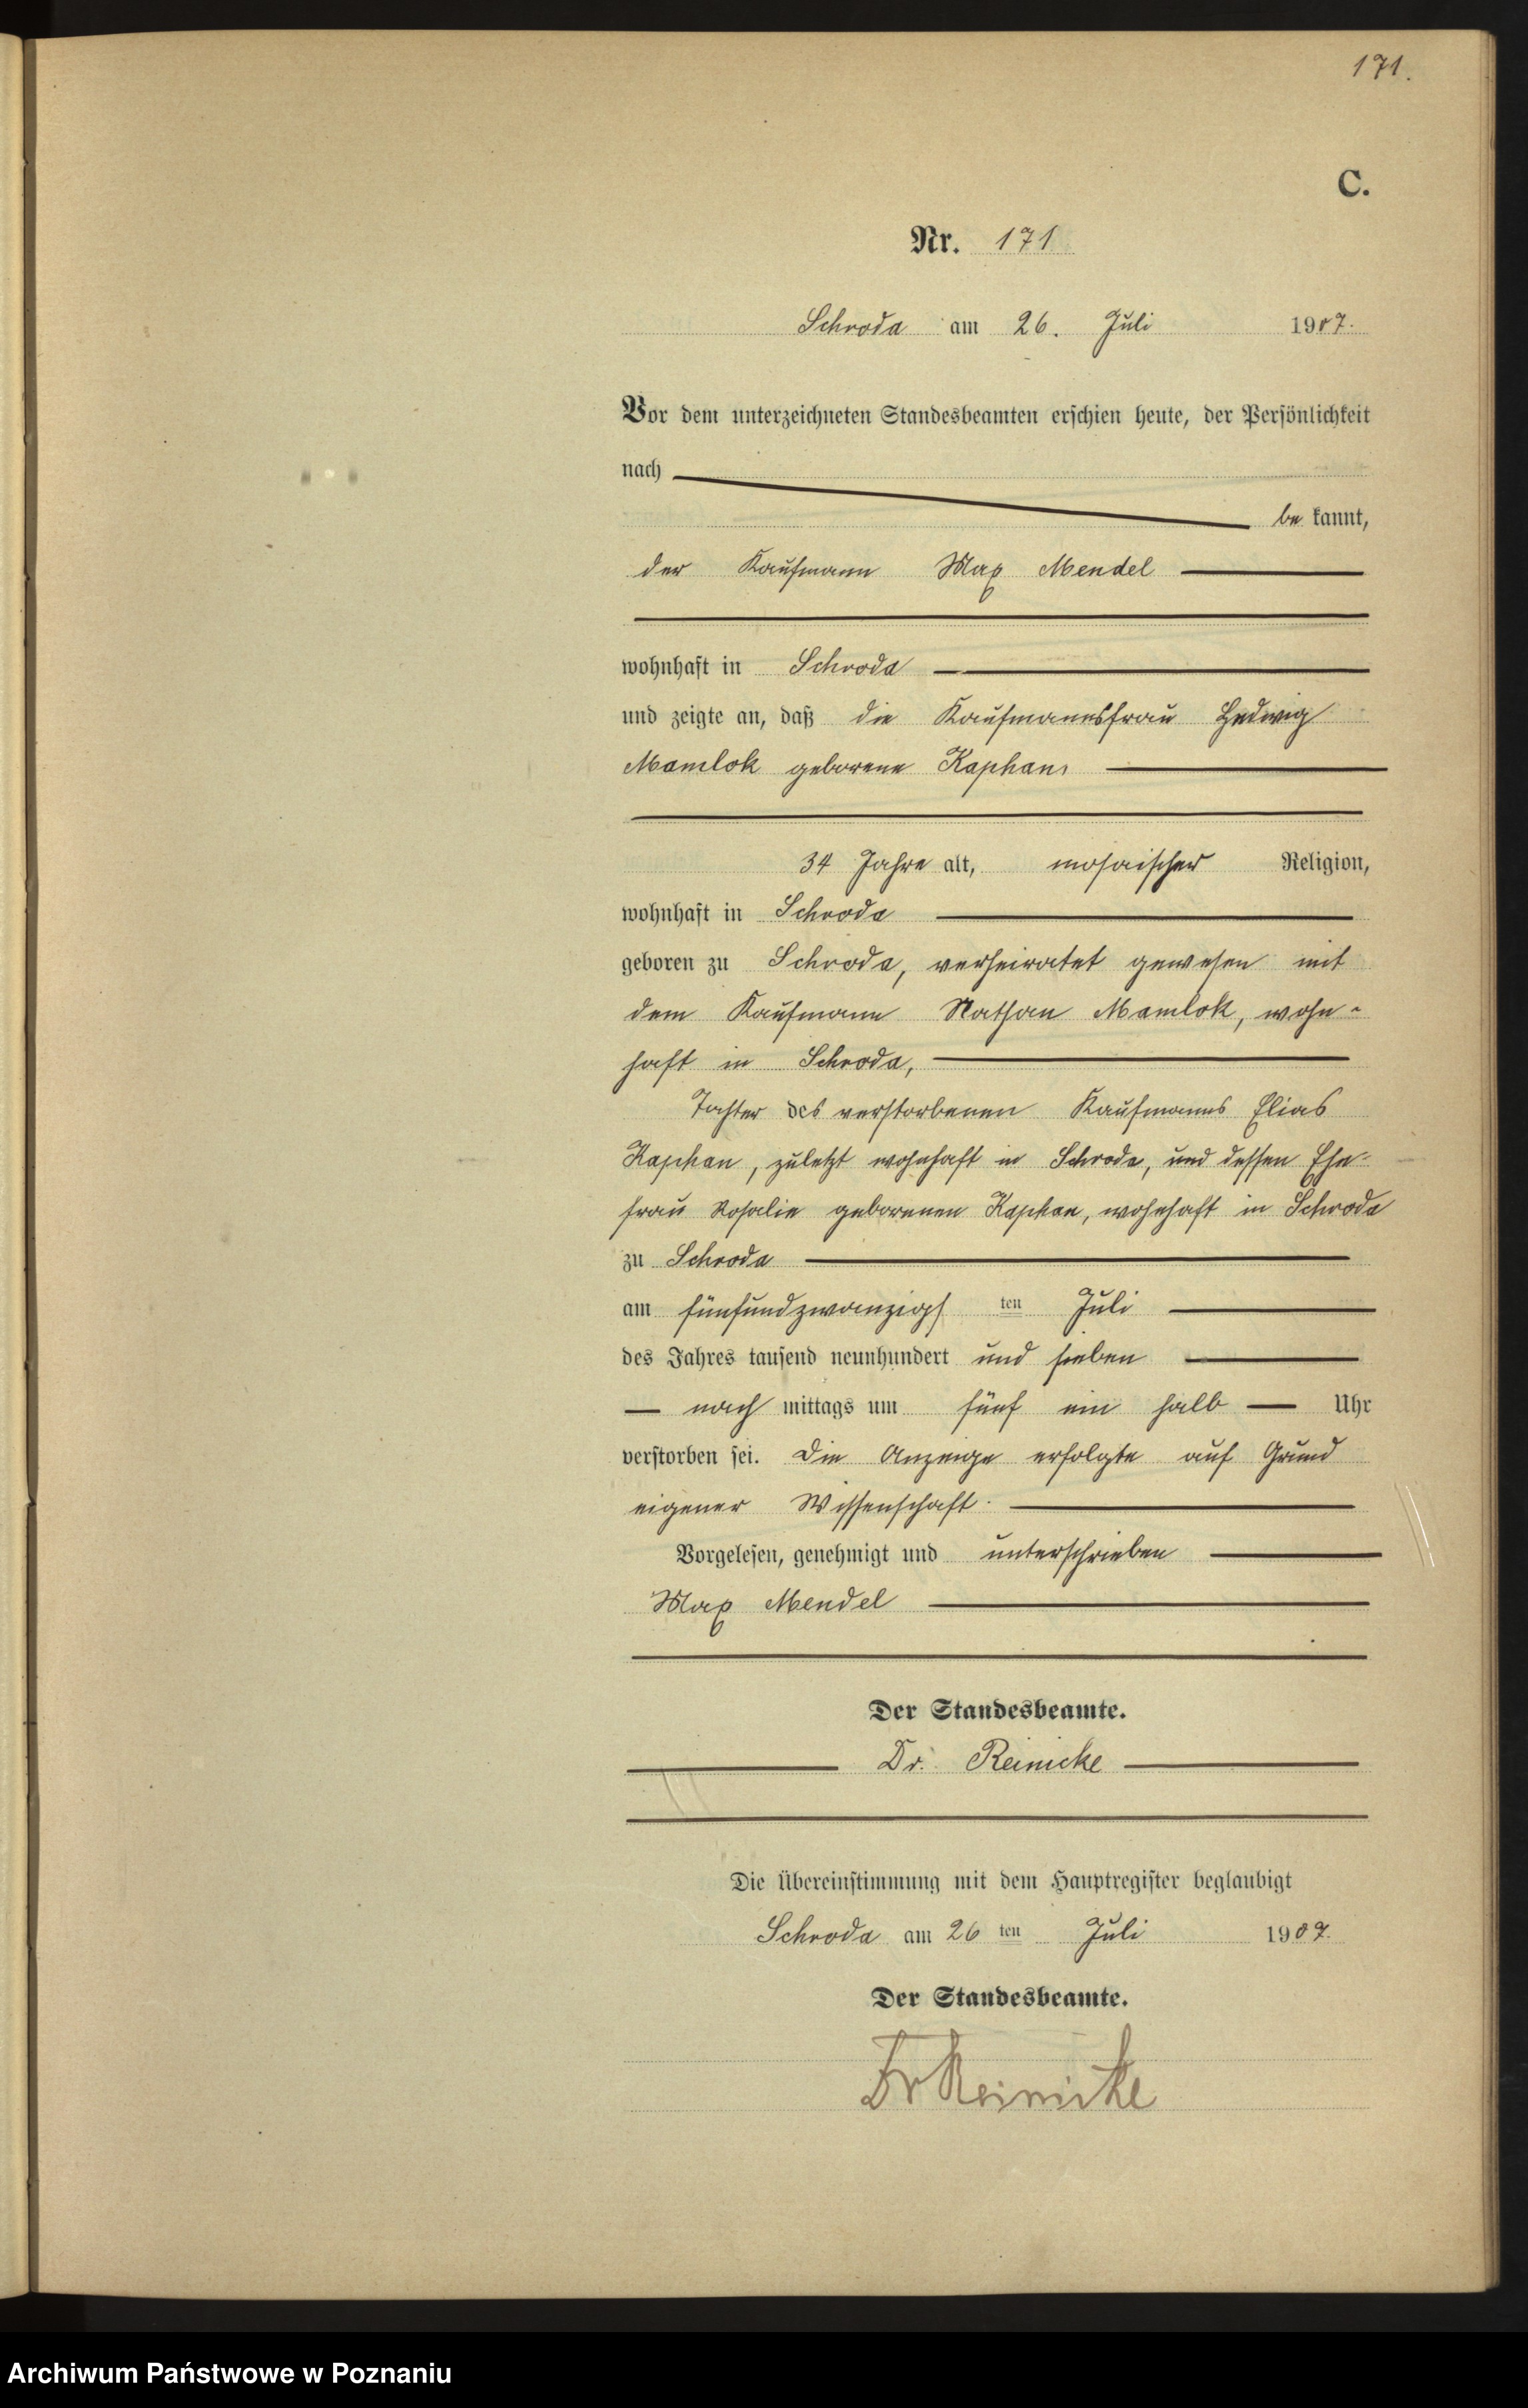 171.
C.
Nr. 171
Schroda am 26. Juli 1907.
Vor dem unterzeichneten Standesbeamten erschien heute, der Persönlichkeit
nach
be kannt,
der Kaufmann Max Mendel
wohnhaft in Schroda
und zeigte an, daß die Kaufmannsfrau Hedwig
Mamlok geborene Kaphan
34 Jahre alt, mosaischer Religion,
wohnhaft in Schroda
geboren zu Schroda, verheiratet gewesen mit
dem Kaufmann Nathan Mamlok, wohn-
haft in Schroda,
Tochter des verstorbenen Kaufmanns Elias
Kaphan, zuletzt wohnhaft in Schroda, und dessen Ehe-
frau Rosalie geborenen Kaphan, wohnhaft in Schroda
zu Schroda
am fünfundzwanzigs ten Juli
des Jahres tausend neunhundert und sieben
nach mittags um fünf ein halb Uhr
verstorben sei. Die Anzeige erfolgte auf Grund
eigener Wissenschaft.
Vorgelesen, genehmigt und unterschrieben
Max Mendel
Der Standesbeamte.
Dr. Reinicke
Die Übereinstimmung mit dem Hauptregister beglaubigt
Schroda am 26 ten Juli 1907.
Der Standesbeamte.
Dr Reinicke
Archiwum Państwowe w Poznaniu